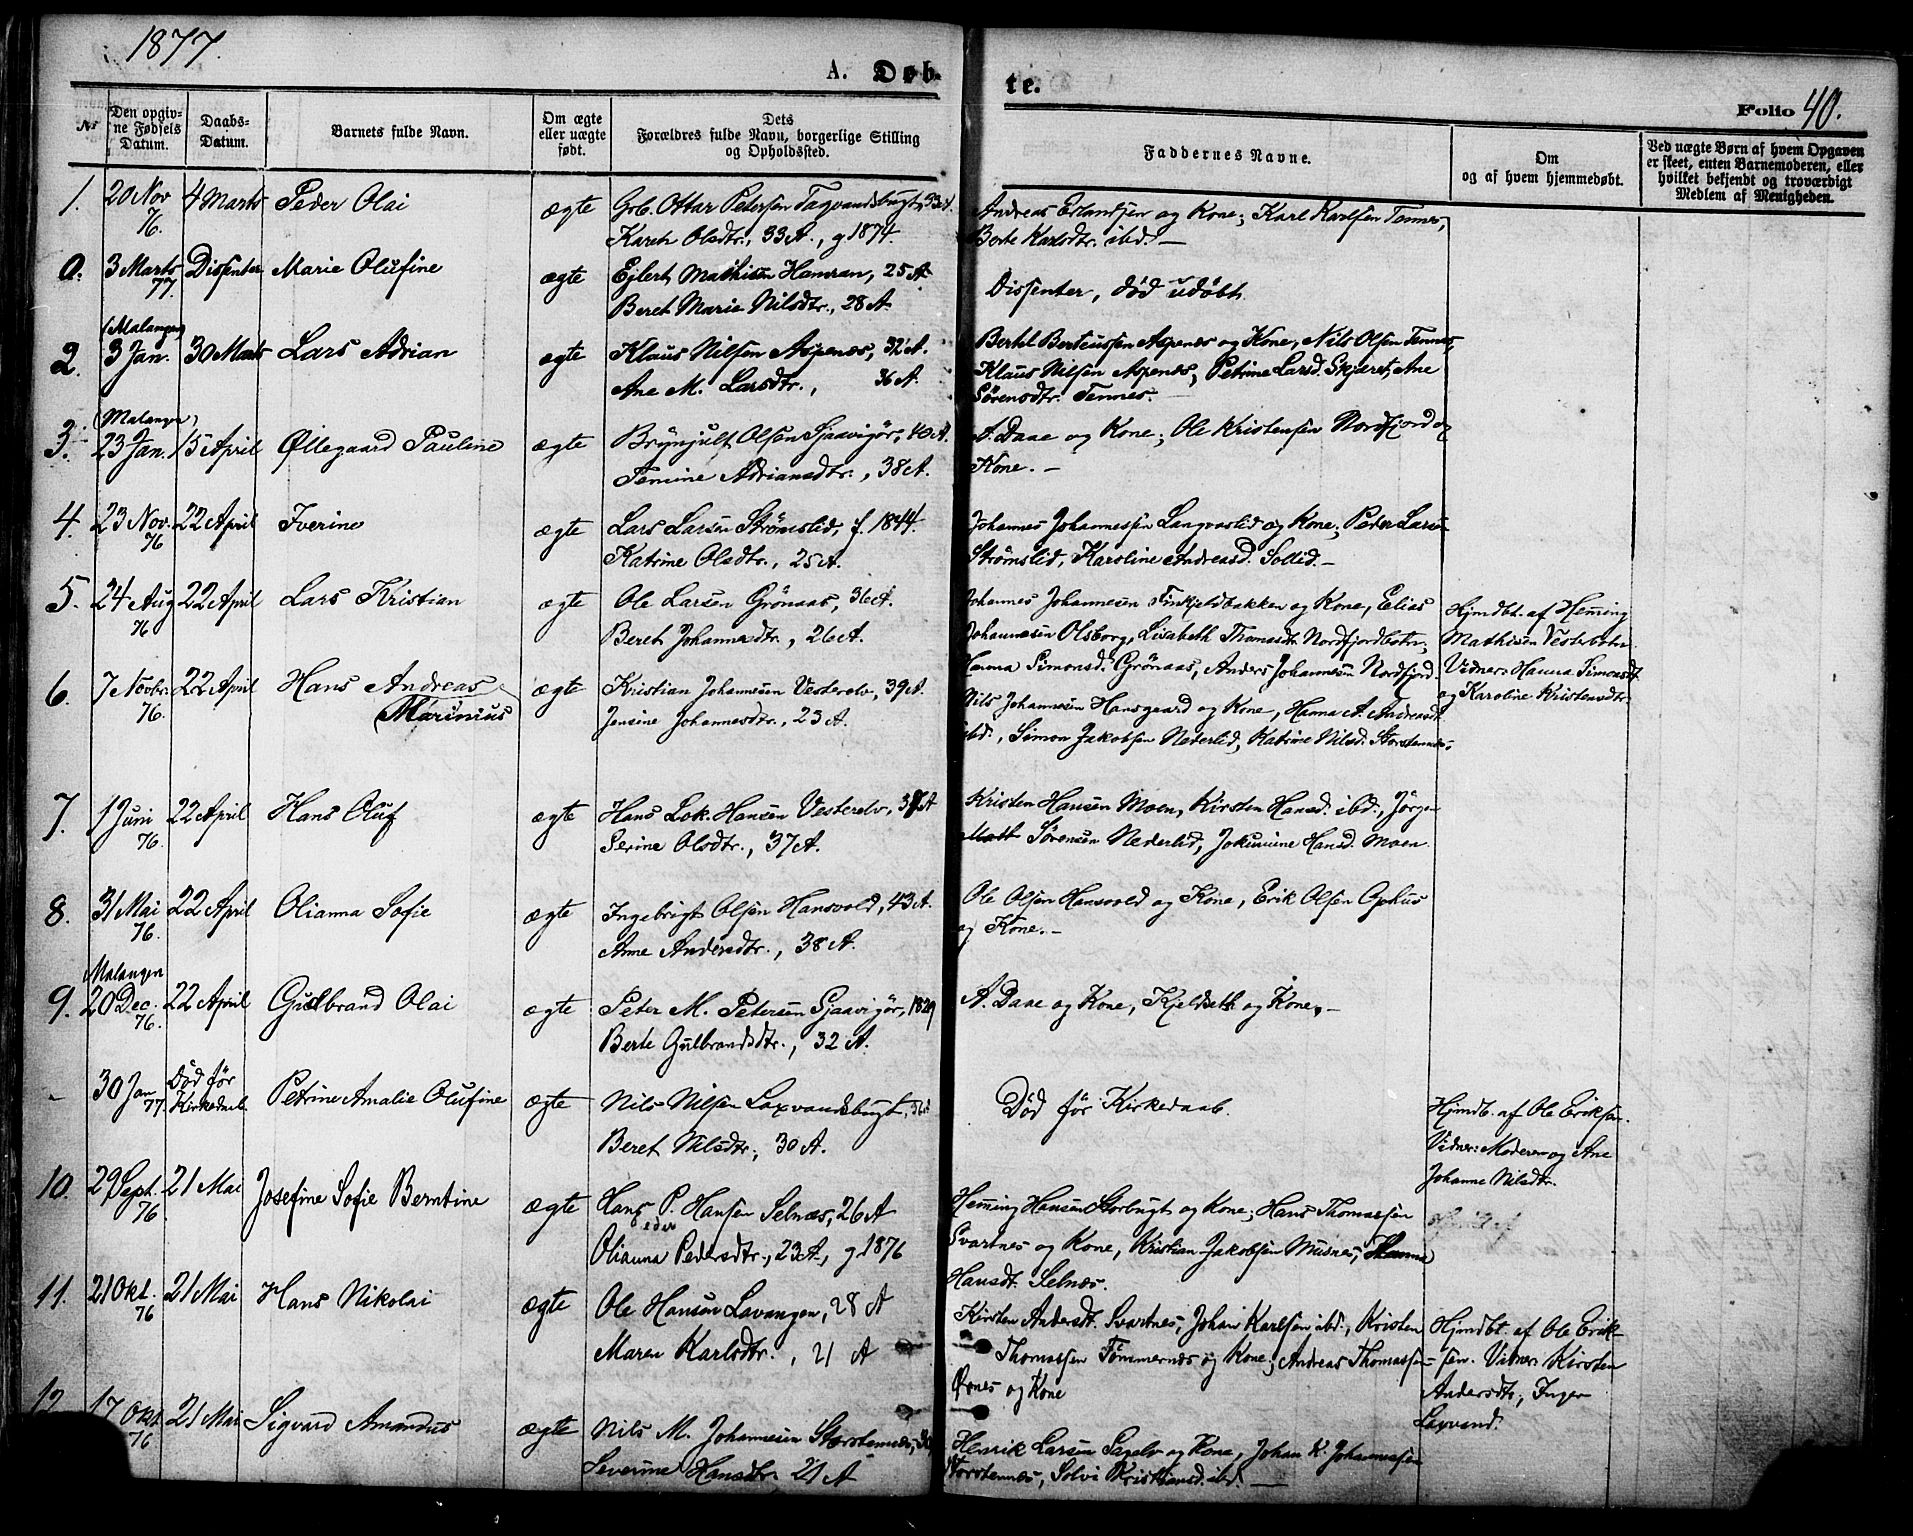 1877.
A. Døbte.
Folio 40.
Nr
Den opgivne Fødsels Datum.
Daabs-Datum.
Barnets fulde Navn.
Om ægte eller uægte født.
Dets Forældres fulde Navn, borgerlige Stilling og Opholdssted.
Faddernes Navne.
Om og af hvem hjemmedøbt.
Ved uægte Børn af hvem Opgaven er skeet, enten Barnemoderen, eller hvilket bekjendt og troværdigt Medlem af Menigheden.
1. 20 Nov 76. 4 Marts Peder Olai ægte Grb. Ottar Petersen Tagvandsbugt, 33 A.
Karen Olsdtr., 33 A., g 1874.
Andreas Erlandsen og Kone; Karl Karlsen Tennes,
Berte Karlsdtr. ibd. —
0. 3 Marts 77. Dissenter Marie Olufine ægte Ejlert Mathisen Hamran, 25 A.
Beret Marie Nilsdtr., 28 A.
Dissenter, død udøbt
(Malangen)
2. 3 Jan. 30 Marts Lars Adrian ægte Klaus Nilsen Aspenæs, 32 A.
Ane M. Larsdtr., 36 A.
Bertel Berteussen Aspenæs og Kone, Nils Olsen Tennes,
Klaus Nilsen Aspenæs, Petrine Larsd. Skjæret, Ane
Sørensdtr. Tennes.
(Malangen)
3. 23 Jan. 15 April Øllegaard Pauline ægte Brynjulf Olsen Sjaavigør, 40 A.
Temine Adriansdtr., 38 A.
A. Daae og Kone; Ole Kristensen Nordfjord og
Kone. —
4. 23 Nov. 76 22 April Iverine ægte Lars Larsen Strømslid, f. 1844.
Katrine Olsdtr., 25 A.
Johannes Johannessen Langvaslid og Kone; Peder Larsen
Strømslid, Karoline Andreasd. Sollid. —
5. 24 Aug 76 22 April Lars Kristian ægte Ole Larsen Grönaas, 36 A.
Beret Johannesdtr., 26 A.
Johannes Johannesen Finkjeldbakken og Kone, Elias
Johannesen Olsborg, Lisabeth Thomasdt. Nordfjordbotn,
Hanna Simonsd. Grönaas, Anders Johannesen Nordfjord.
Hjmdbt. af Heming
Mathisen Vesterbotn.
Vidner: Hanna Simonsdt.
og Karoline Kristensdtr.
6. 7 Novbr. 76. 22 April Hans Andreas
Marinius ægte Kristian Johannesen Vesterelv, 39 A.
Jensine Johannesdtr., 25 A.
Nils Johannesen Hansgaard og Kone, Hanna A. Andreasdt.
ibd., Simon Jakobsen Nederlid, Katrine Nilsd. Storstennes.
7. 1 Juni 76. 22 April Hans Oluf ægte Hans Lok. Hansen Vesterelv, 37 A
Serine Olsdtr., 37 A.
Kristen Hansen Moen, Kirsten Hansd. ibd., Jörgen
Sørensen Nederlid, Jokumine Hansd. Moen.
8. 31 Mai 76. 22 April Olianna Sofie ægte Ingebrigt Olsen Hansvold, 43 A.
Anne Andersdtr., 38 A.
Ole Olsen Hansvold og Kone, Erik Olsen Ophus
og Kone. —
Malangen
9. 20 Dec. 76. 22 April Gulbrand Olai ægte Peter M. Petersen Sjaavigör, 1829
Berte Gulbrandsdtr., 32 A.
A. Daae og Kone, Kjeldseth og Kone. —
- 30 Jan 77. Død før Kirkedaab. Petrine Amalie Olufine ægte Nils Nilsen Laxvandsbugt, 36 A
Beret Nilsdtr., 30 A.
Död før Kirkedaab.
Hjmdb. af Ole Eriksen.
Vidner: Moderen og Ane
Johanne Nilsdtr.
10. 29 Sept. 76. 21 Mai Josefine Sofie Berntine ægte Hans P. Hansen Selnæs, 26 A
Olianna Pedersdtr., 23 A., g 1876
Heming Hansen Storbugt og Kone; Hans Thomassen
Svartnes og Kone, Kristian Jakobsen Musnes, Hanna
Hansdt. Selnæs.
11. 21 Okt. 76 21 Mai Hans Nikolai ægte Ole Hansen Lavangen, 28 A
Maren Karlsdtr., 21 A
Kirsten Andersdt. Svartnes, Johan Karlsen ibd., Kristen
Thomassen Tömmernæs og Kone; Andreas Thomassen
Ørnes og Kone
Hjmdbt. af Ole Erik-
sen. Vidner Kirsten
Andersdtr, Inger
Laxvand.
12. 17 Okt. 76 21 Mai Sigvard Amandus ægte Nils M. Johannesen Storstennæs,
Severine Hansdtr. 21 A
Henrik Larsen Sagelv og Kone, Johan K. Johannessen
Storstennæs, Solvi Kristiansd. ibd. —